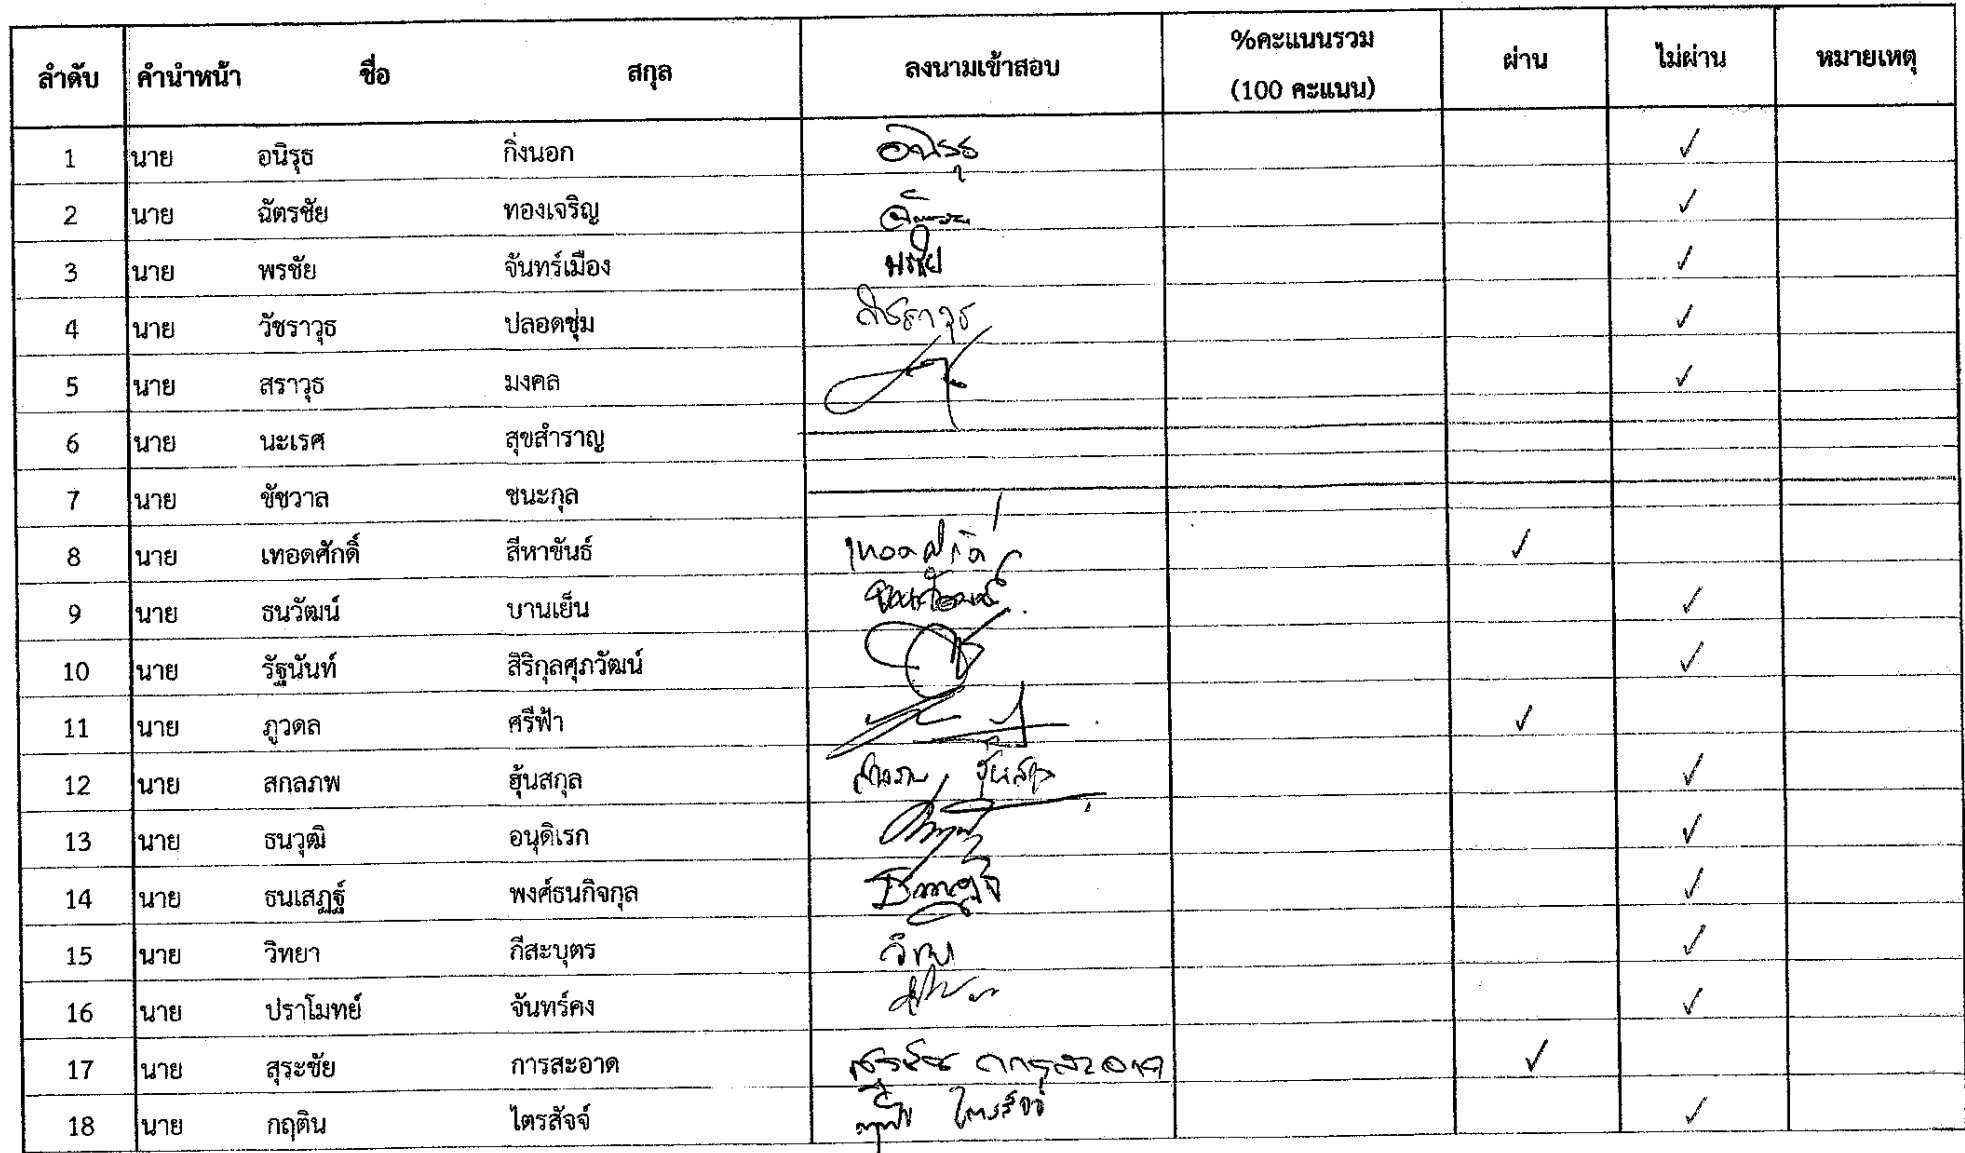 ลำดับ คำนำหน้า ชื่อ สกุล ลงนามเข้าสอบ %คะแนนรวม (100 คะแนน) ผ่าน ไม่ผ่าน หมายเหตุ
1 นาย อนิรุธ กิ่งนอก อนิรุธ ✓
2 นาย ฉัตรชัย ทองเจริญ ✓
3 นาย พรชัย จันทร์เมือง พรชัย ✓
4 นาย วัชราวุธ ปลอดชุ่ม วัชราวุธ ✓
5 นาย สราวุธ มงคล ✓
6 นาย นะเรศ สุขสำราญ
7 นาย ชัชวาล ชนะกุล
8 นาย เทอดศักดิ์ สีหาขันธ์ เทอดศักดิ์ ✓
9 นาย ธนวัฒน์ บานเย็น ธนวัฒน์ ✓
10 นาย รัฐนันท์ สิริกุลศุภวัฒน์ ✓
11 นาย ภูวดล ศรีฟ้า ✓
12 นาย สกลภพ ฮุ้นสกุล สกลภพ ฮุ้นสกุล ✓
13 นาย ธนวุฒิ อนุดิเรก ✓
14 นาย ธนเสฏฐ์ พงศ์ธนกิจกุล ✓
15 นาย วิทยา กีสะบุตร วิทยา ✓
16 นาย ปราโมทย์ จันทร์คง ✓
17 นาย สุระชัย การสะอาด สุระชัย การสะอาด ✓
18 นาย กฤติน ไตรสัจจ์ ไตรสัจจ์ ✓